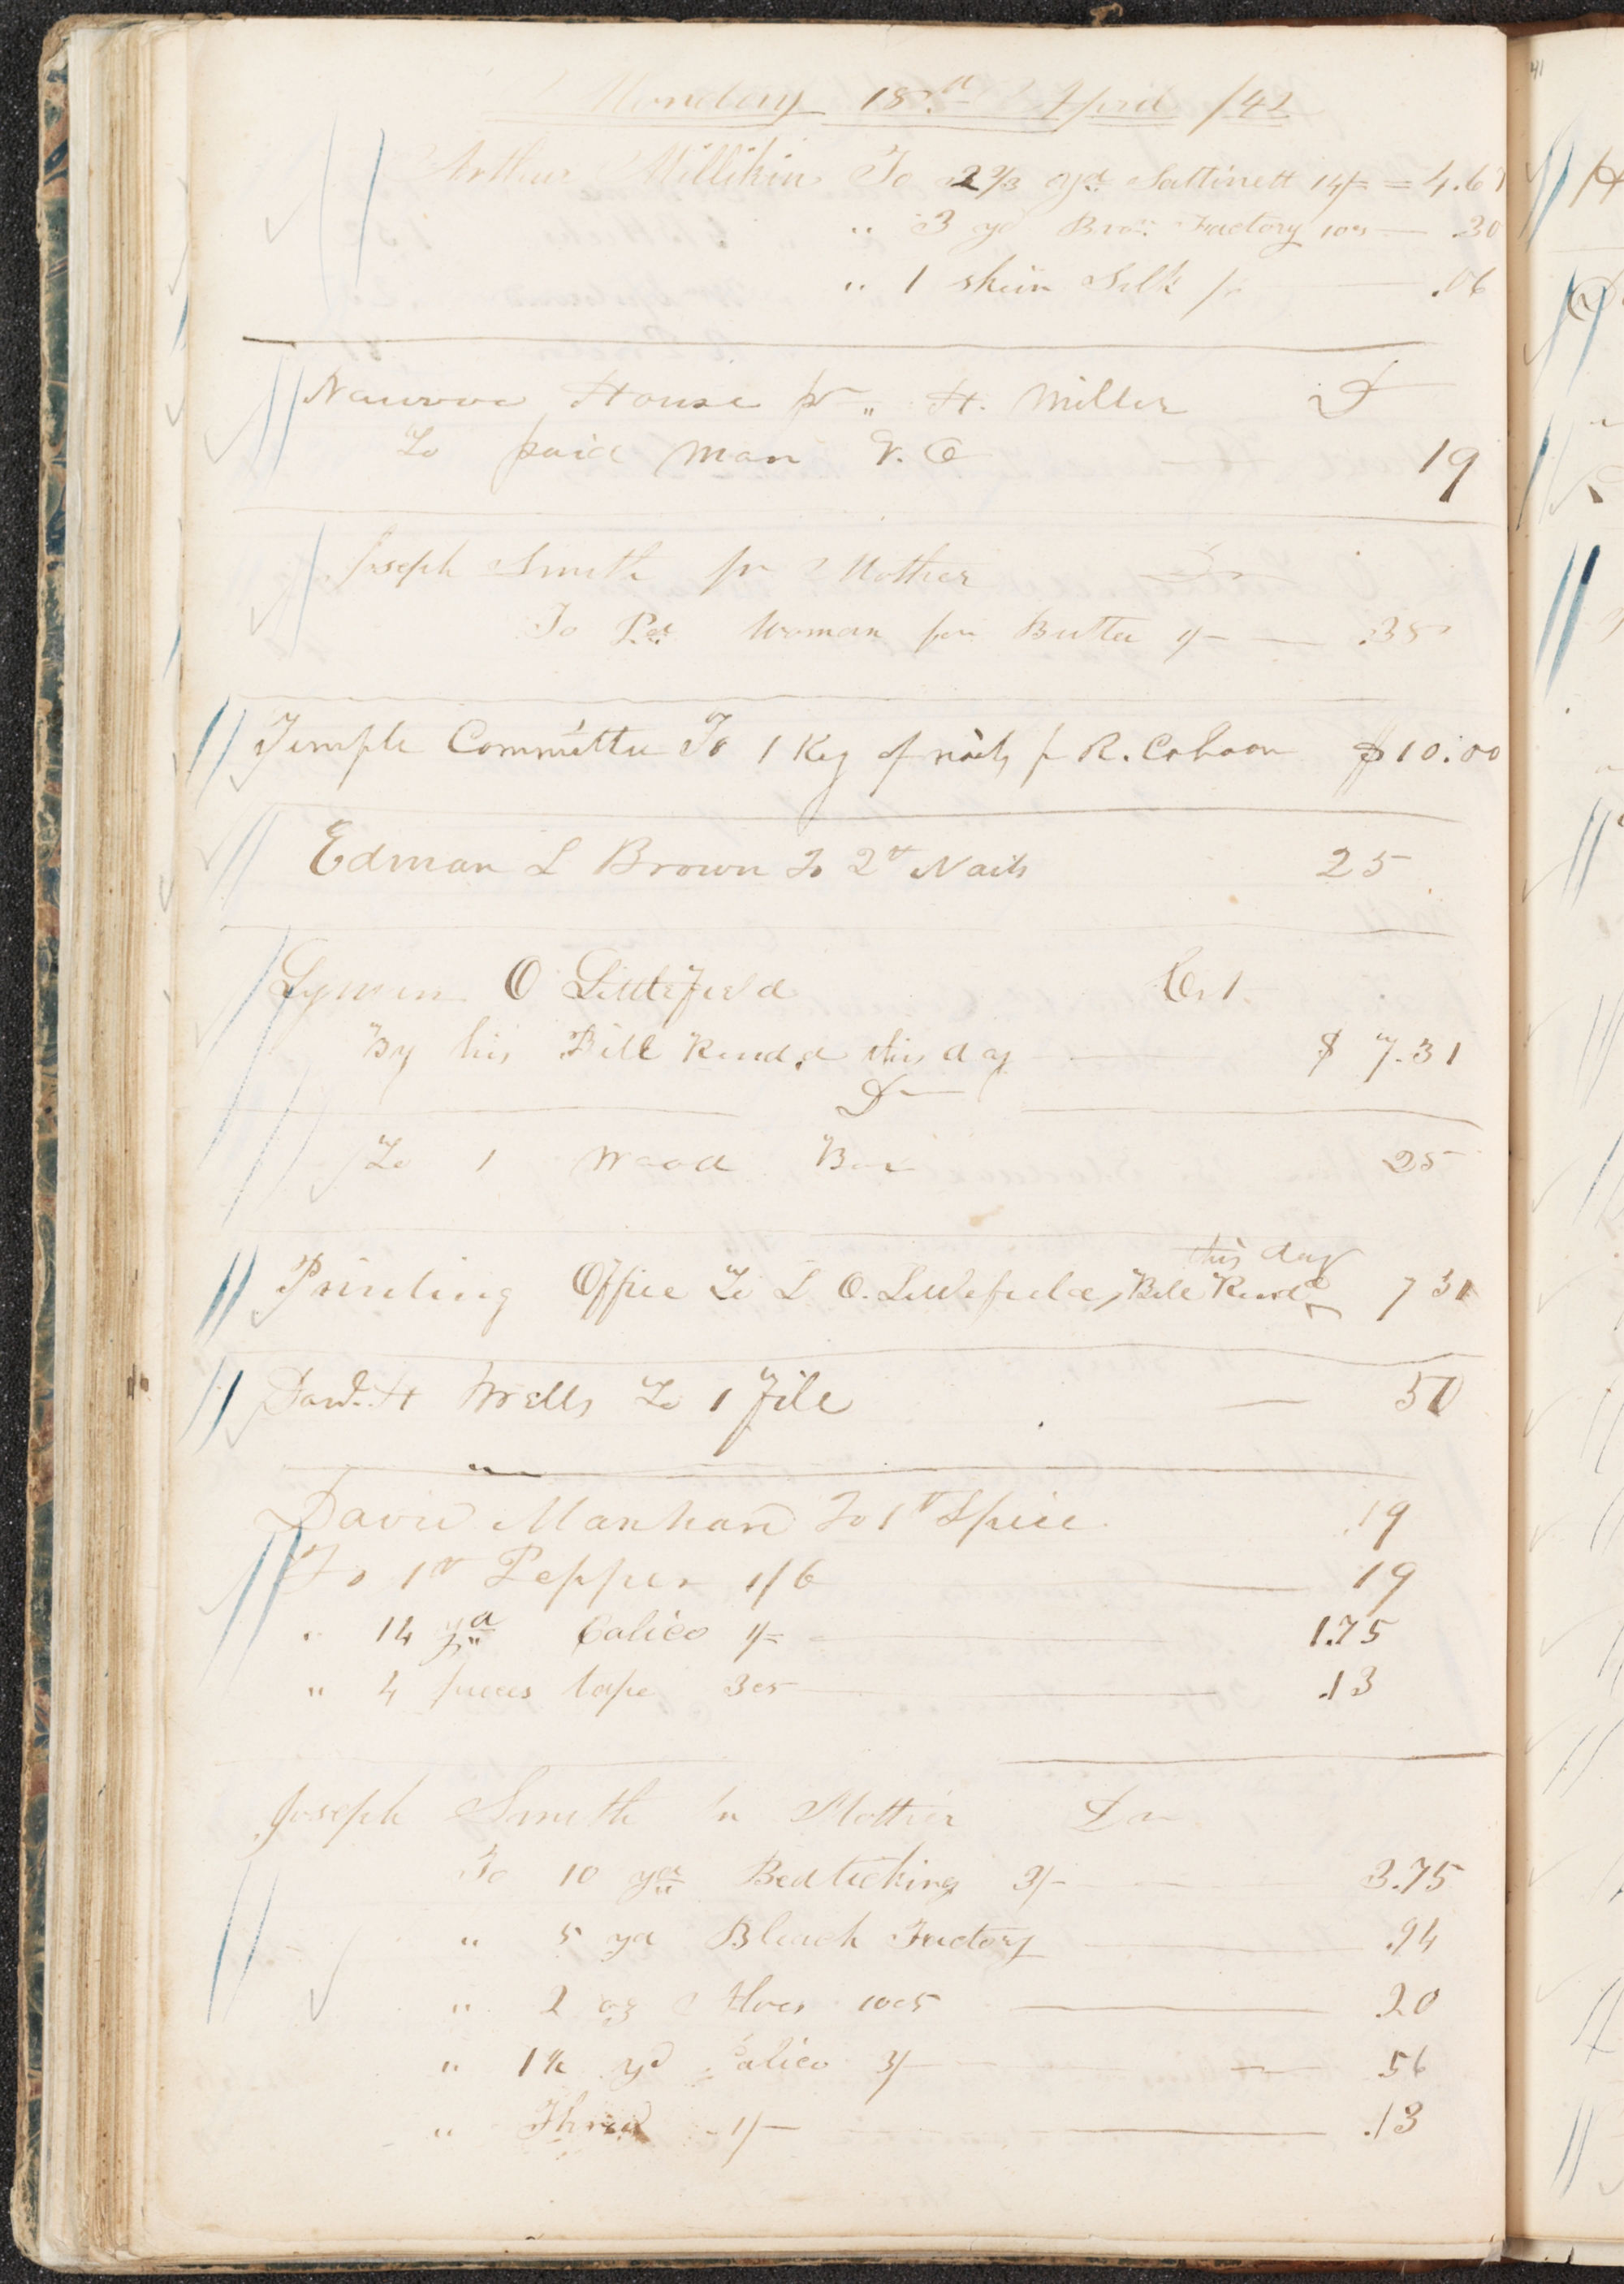 Monday 18th April /42
Arthur Millikin To 2 2/3 yd Sattinett 14/= = 4.67
" 3 yd Bro. Factory 10cs — .30
" 1 skein Silk — .06
Nauvoo House pr " H. Miller Dr
To paid man V. O 19
Joseph Smith pr Mother Dr
To Pd Woman for Butter — .38
Temple Committee To 1 Keg of nails pr R. Cahoon $10.00
Edman L Brown To 2 lb Nails 25
Lyman O Littlefield Cr
By his Bill Rend.d this day $ 7.31
Dr
To 1 Wood Box 25
this day
Printing Office To L O. Littlefield, Bill Rend^d 7 31
Danl. H Wells To 1 File — 50
David Manhard To 1 lb Spice .19
To 1 lb Pepper 1/6 — 19
" 14 yd Calico 1/= — 1.75
" 4 pieces tape 3cs — .13
Joseph Smith pr Mother Dr
To 10 yds Bedticking 3/- — 3.75
" 5 yd Bleach Factory — .94
" 2 oz Aloes 10cs — .20
" 1 1/2 yd Calico 3/- — 56
" Thread 1/- — .13
41